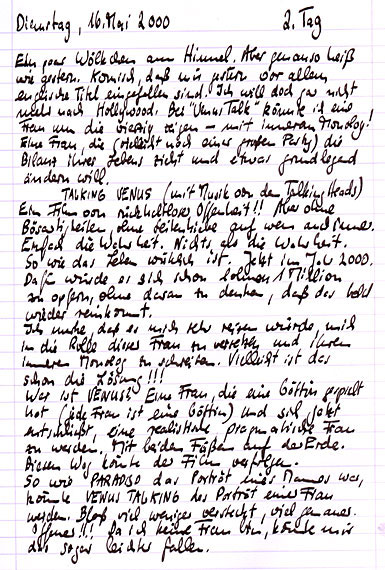 Dienstag, 16. Mai 2000 2. Tag
Ein paar Wölkchen am Himmel. Aber genauso heiß
wie gestern. Komisch, daß mir gestern vor allem
englische Titel eingefallen sind! Ich will doch gar nicht
mehr nach Hollywood. Bei "Venus Talk" könnte ich eine
Frau um die vierzig zeigen – mit innerem Monolog!
Eine Frau, die (vielleicht nach einer großen Party) die
Bilanz ihres Lebens zieht und etwas grundlegend
ändern will.
TALKING VENUS (mit Musik von den Talking Heads)
Ein Film von rücksichtsloser Offenheit!! Aber ohne
Bösartigkeiten, ohne Seitenhiebe auf wen auch immer.
Einfach die Wahrheit. Nichts als die Wahrheit.
So wie das Leben wirklich ist. Jetzt im Jahr 2000.
Dafür würde es sich schon lohnen 1 Million
zu opfern, ohne daran zu denken, daß das Geld
wieder reinkommt.
Ich merke, daß es mich sehr reizen würde, mich
in die Rolle dieser Frau zu versetzen und ihren
inneren Monolog zu schreiben. Vielleicht ist das
schon die Lösung!!!
Wer ist VENUS? Eine Frau, die eine Göttin gespielt
hat (jede Frau ist eine Göttin) und sich jetzt
entschließt, eine realistische pragmatische Frau
zu werden. Mit beiden Füßen auf der Erde.
Diesen Weg könnte der Film verfolgen.
So wie PARADISO das Porträt eines Mannes war,
könnte VENUS TALKING das Porträt einer Frau
werden. Bloß viel weniger versteckt, viel genauer.
Offener!!! Da ich keine Frau bin, könnte mir
das sogar leichter fallen.